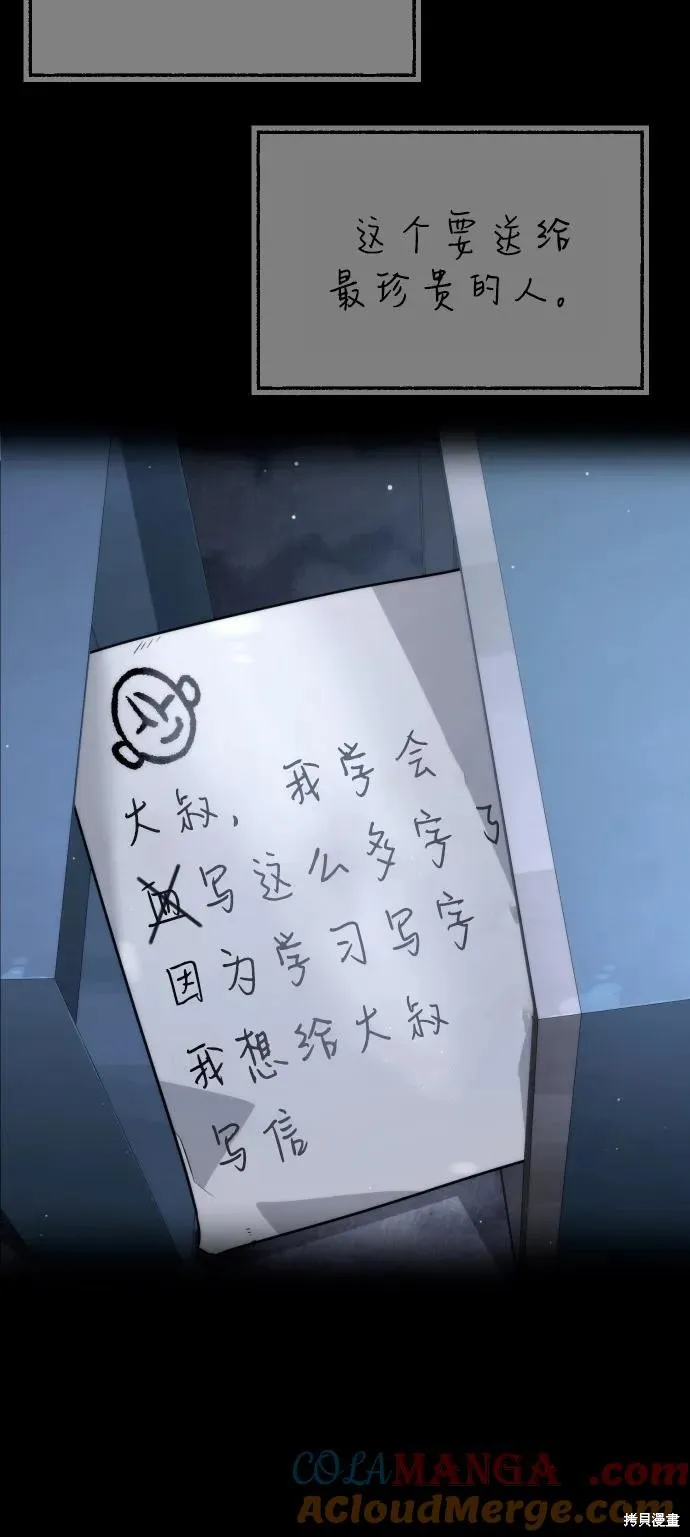 这个要送给
最珍贵的人。
大叔，我学会
写这么多字了
因为学习写字
我想给大叔
写信
COLAMANGA.com
AcloudMerge.com
拷貝漫畫